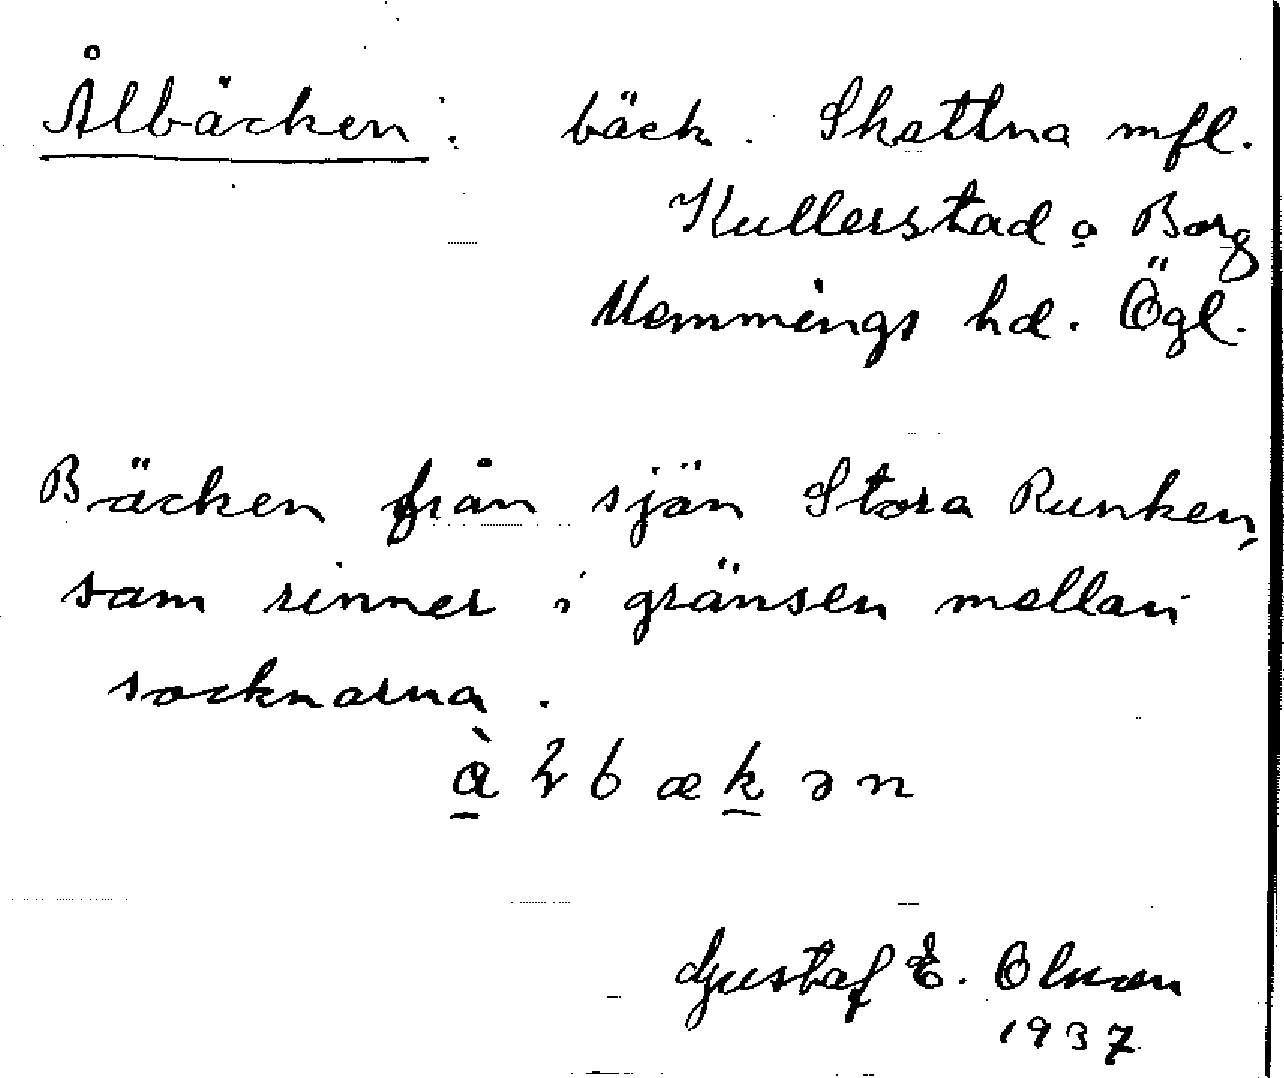 Ålbäcken: bäck. Skattna mfl.
Kullerstad o Borg
Memmings hd. Ögl.
Bäcken från sjön Stora Runken,
som rinner i gränsen mellan
socknarna.
bækən
Gustaf E. Olsson
1937